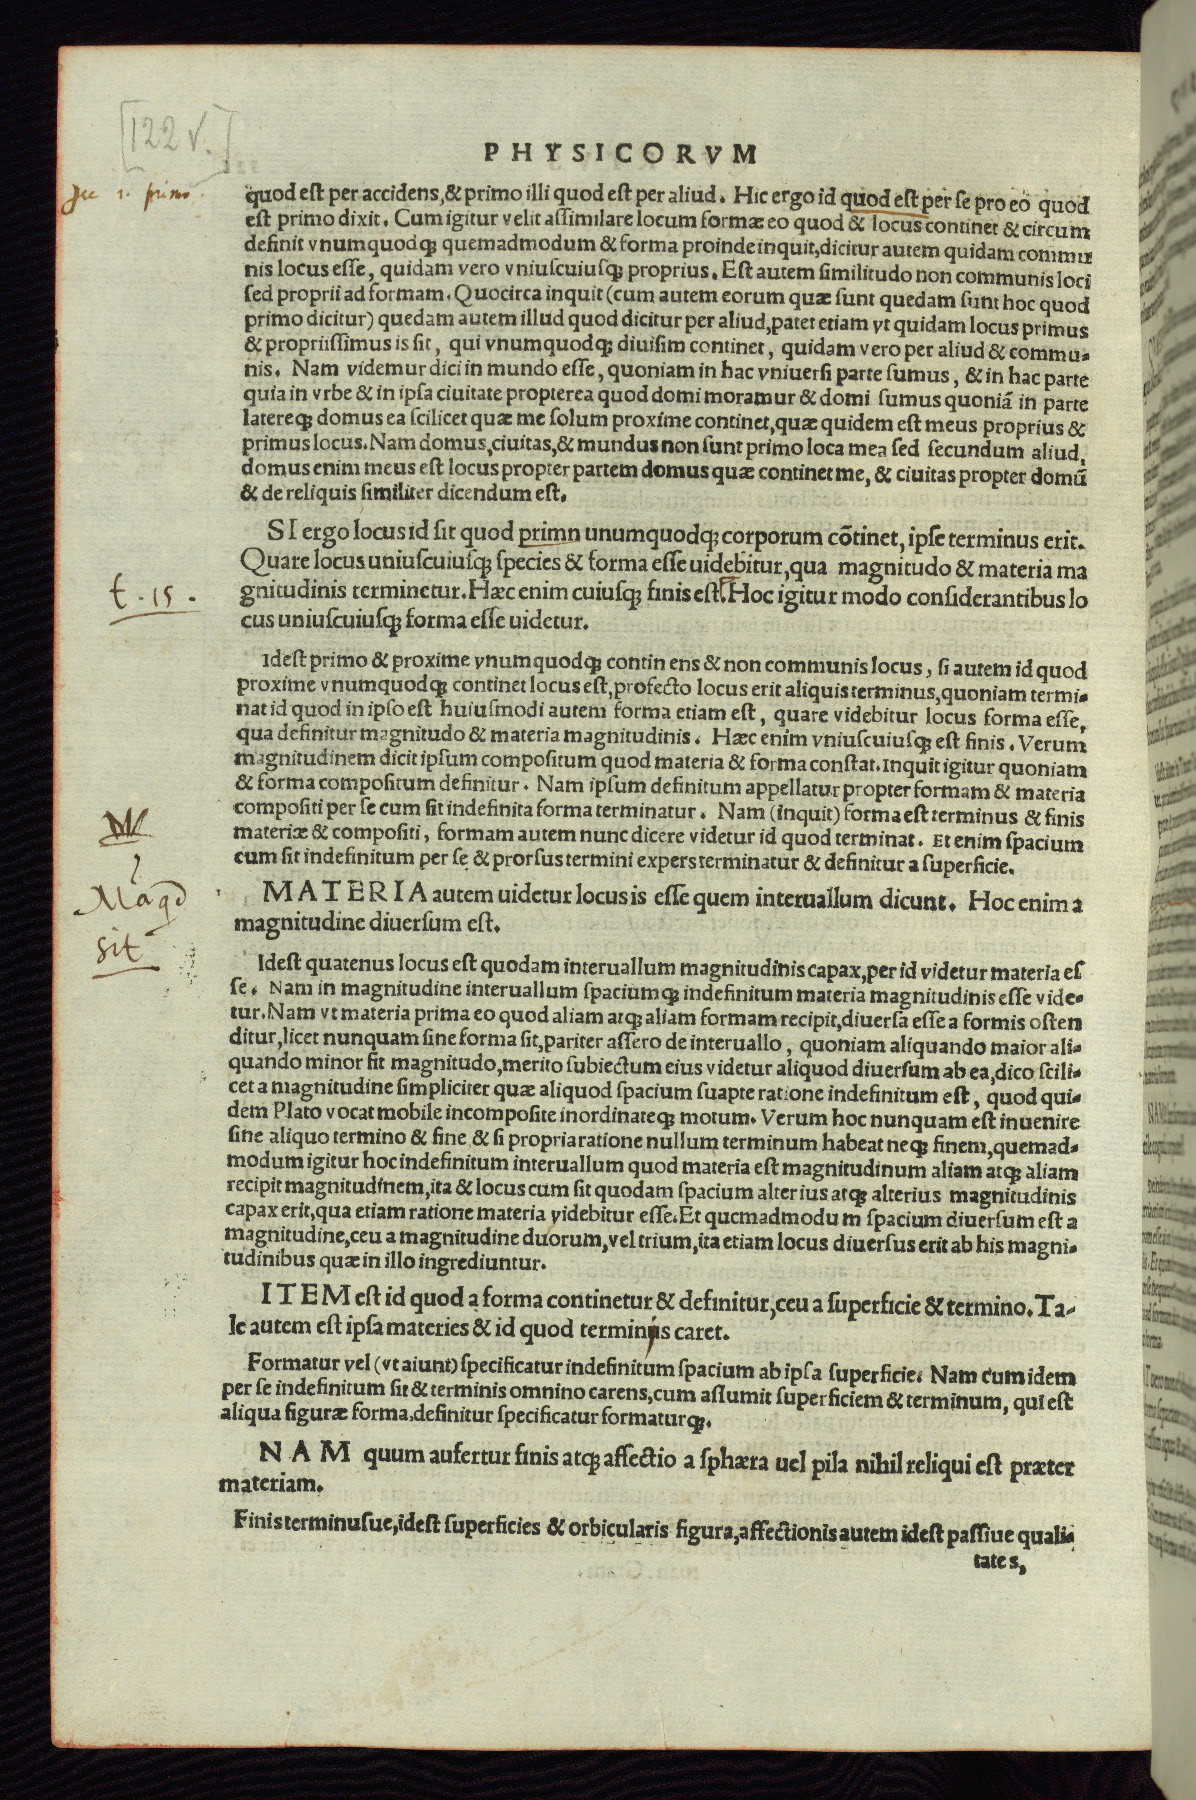 [122 v.]
PHYSICORVM
quod est per accidens,& primo illi quod est per aliud. Hic ergo id quod est per se pro eo quod
est primo dixit. Cum igitur velit assimilare locum formæ eo quod & locus continet & circum
definit vnumquodq; quemadmodum & forma proinde inquit,dicitur autem quidam commu
nis locus esse, quidam vero vniuscuiusq; proprius. Est autem similitudo non communis loci
sed proprii ad formam. Quocirca inquit (cum autem eorum quæ sunt quedam sunt hoc quod
primo dicitur) quedam autem illud quod dicitur per aliud,patet etiam vt quidam locus primus
& propriissimus is sit, qui vnumquodq; diuisim continet, quidam vero per aliud & commu-
nis. Nam videmur dici in mundo esse, quoniam in hac vniuersi parte sumus, & in hac parte
quia in vrbe & in ipsa ciuitate propterea quod domi moramur & domi sumus quoniã in parte
latereq; domus ea scilicet quæ me solum proxime continet,quæ quidem est meus proprius &
primus locus. Nam domus,ciuitas,& mundus non sunt primo loca mea sed secundum aliud,
domus enim meus est locus propter partem domus quæ continet me, & ciuitas propter domũ
& de reliquis similiter dicendum est.
SI ergo locus id sit quod primn unumquodq; corporum cõtinet, ipse terminus erit.
Quare locus uniuscuiusq; species & forma esse uidebitur,qua magnitudo & materia ma
t. 15.
gnitudinis terminetur. Hæc enim cuiusq; finis est. Hoc igitur modo considerantibus lo
cus uniuscuiusq; forma esse uidetur.
Idest primo & proxime vnumquodq; contin ens & non communis locus, si autem id quod
proxime vnumquodq; continet locus est,profecto locus erit aliquis terminus,quoniam termi-
nat id quod in ipso est huiusmodi autem forma etiam est, quare videbitur locus forma esse,
qua definitur magnitudo & materia magnitudinis. Hæc enim vniuscuiusq; est finis. Verum
magnitudinem dicit ipsum compositum quod materia & forma constat. Inquit igitur quoniam
& forma compositum definitur. Nam ipsum definitum appellatur propter formam & materia
compositi per se cum sit indefinita forma terminatur. Nam (inquit) forma est terminus & finis
materiæ & compositi, formam autem nunc dicere videtur id quod terminat. Et enim spacium
cum sit indefinitum per se & prorsus termini expers terminatur & definitur a superficie.
MATERIA autem uidetur locus is esse quem interuallum dicunt. Hoc enim a
magnitudine diuersum est.
sit
Idest quatenus locus est quodam interuallum magnitudinis capax,per id videtur materia es
se. Nam in magnitudine interuallum spaciumq; indefinitum materia magnitudinis esse vide-
tur. Nam vt materia prima eo quod aliam atq; aliam formam recipit,diuersa esse a formis osten
ditur,licet nunquam sine forma sit,pariter assero de interuallo, quoniam aliquando maior ali-
quando minor fit magnitudo,merito subiectum eius videtur aliquod diuersum ab ea,dico scili-
cet a magnitudine simpliciter quæ aliquod spacium suapte ratione indefinitum est, quod qui-
dem Plato vocat mobile incomposite inordinateq; motum. Verum hoc nunquam est inuenire
sine aliquo termino & fine & si propria ratione nullum terminum habeat neq; finem,quemad-
modum igitur hoc indefinitum interuallum quod materia est magnitudinum aliam atq; aliam
recipit magnitudinem,ita & locus cum sit quodam spacium alterius atq; alterius magnitudinis
capax erit,qua etiam ratione materia videbitur esse. Et quemadmodu m spacium diuersum est a
magnitudine,ceu a magnitudine duorum,vel trium,ita etiam locus diuersus erit ab his magni-
tudinibus quæ in illo ingrediuntur.
ITEM est id quod a forma continetur & definitur,ceu a superficie & termino. Ta-
le autem est ipsa materies & id quod terminijs caret.
Formatur vel (vt aiunt) specificatur indefinitum spacium ab ipsa superficie. Nam cum idem
per se indefinitum sit & terminis omnino carens,cum assumit superficiem & terminum, qui est
aliqua figuræ forma,definitur specificatur formaturq;.
NAM quum aufertur finis atq; affectio a sphæra uel pila nihil reliqui est præter
materiam.
Finis terminusue,idest superficies & orbicularis figura,affectionis autem idest passiue quali-
tate s,